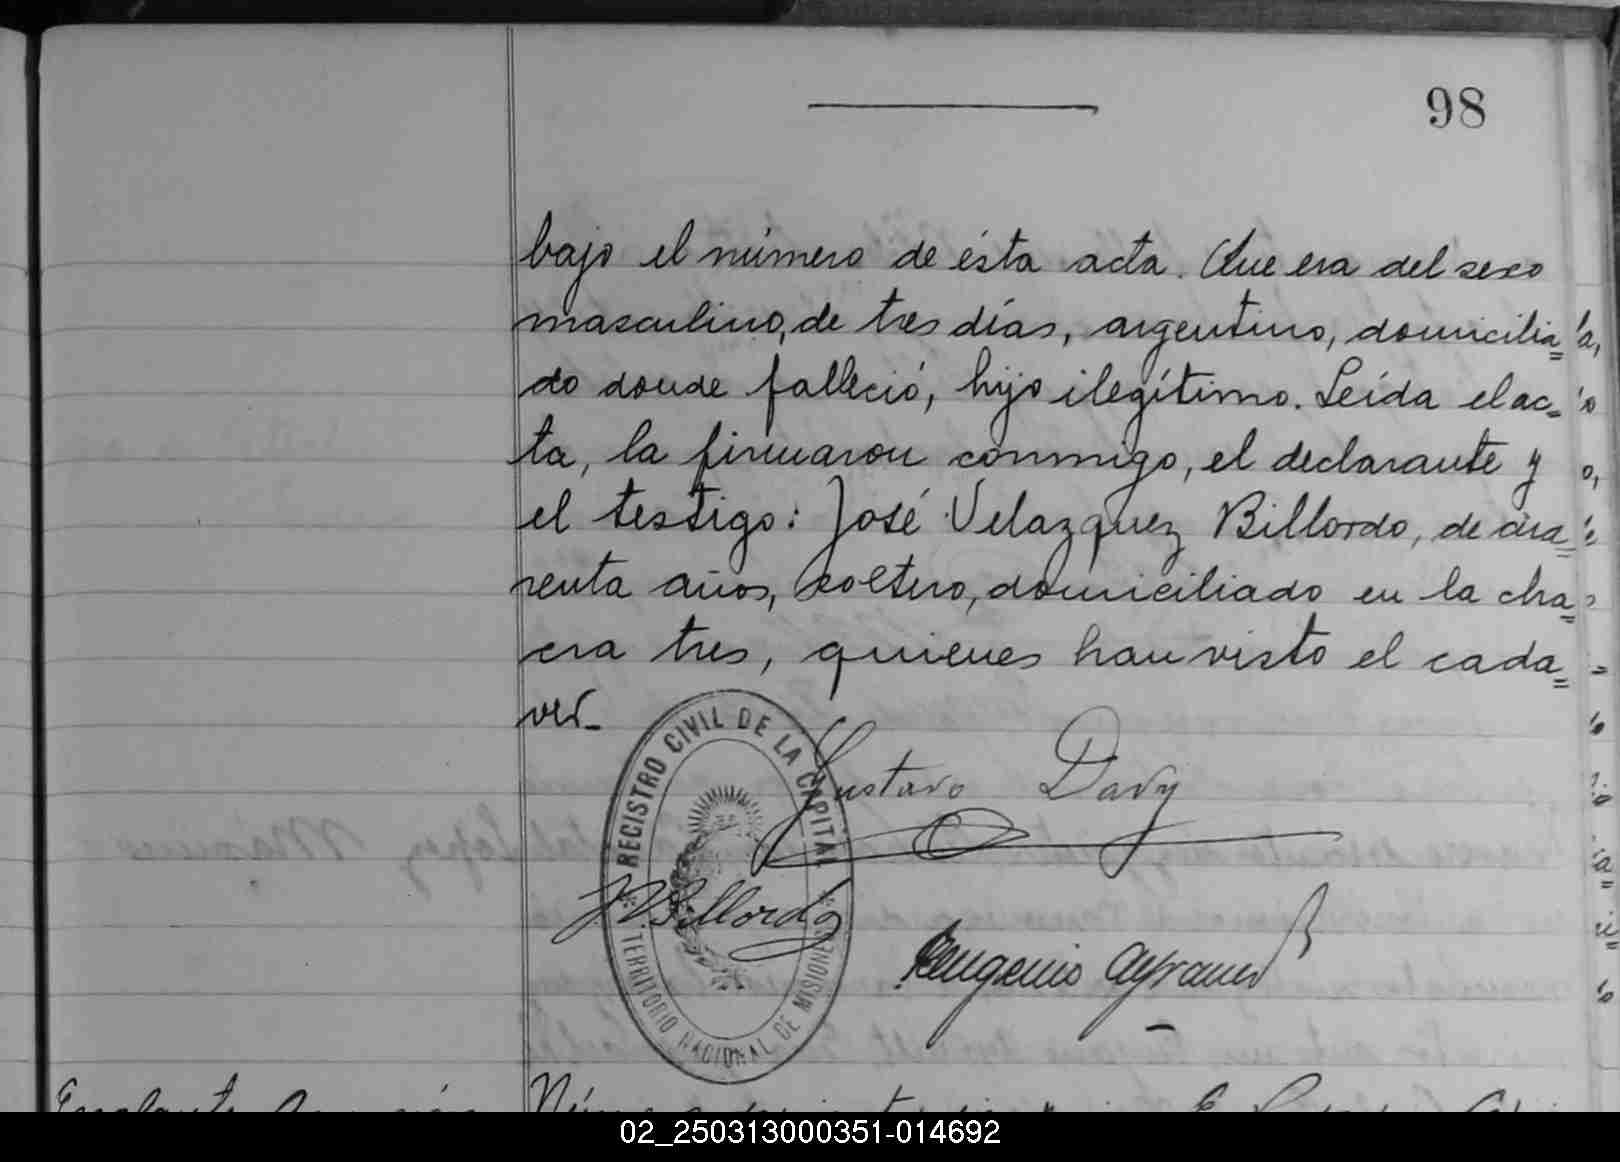 98
bajo el número de ésta acta. Que era del sexo
masculino, de tres días, argentino, domicilia=
do donde falleció, hijo ilegítimo. Leída el ac=
ta, la firmaron conmigo, el declarante y
el testigo: José Velazquez Billordo, de cua=
renta años, soltero, domiciliado en la cha=
cra tres, quienes han visto el cada=
ver.-
REGISTRO CIVIL DE LA CAPITAL
TERRITORIO NACIONAL DE MISIONES
Gustavo Davy
J. V. Billordo
Eugenio
Núm
02_250313000351-014692